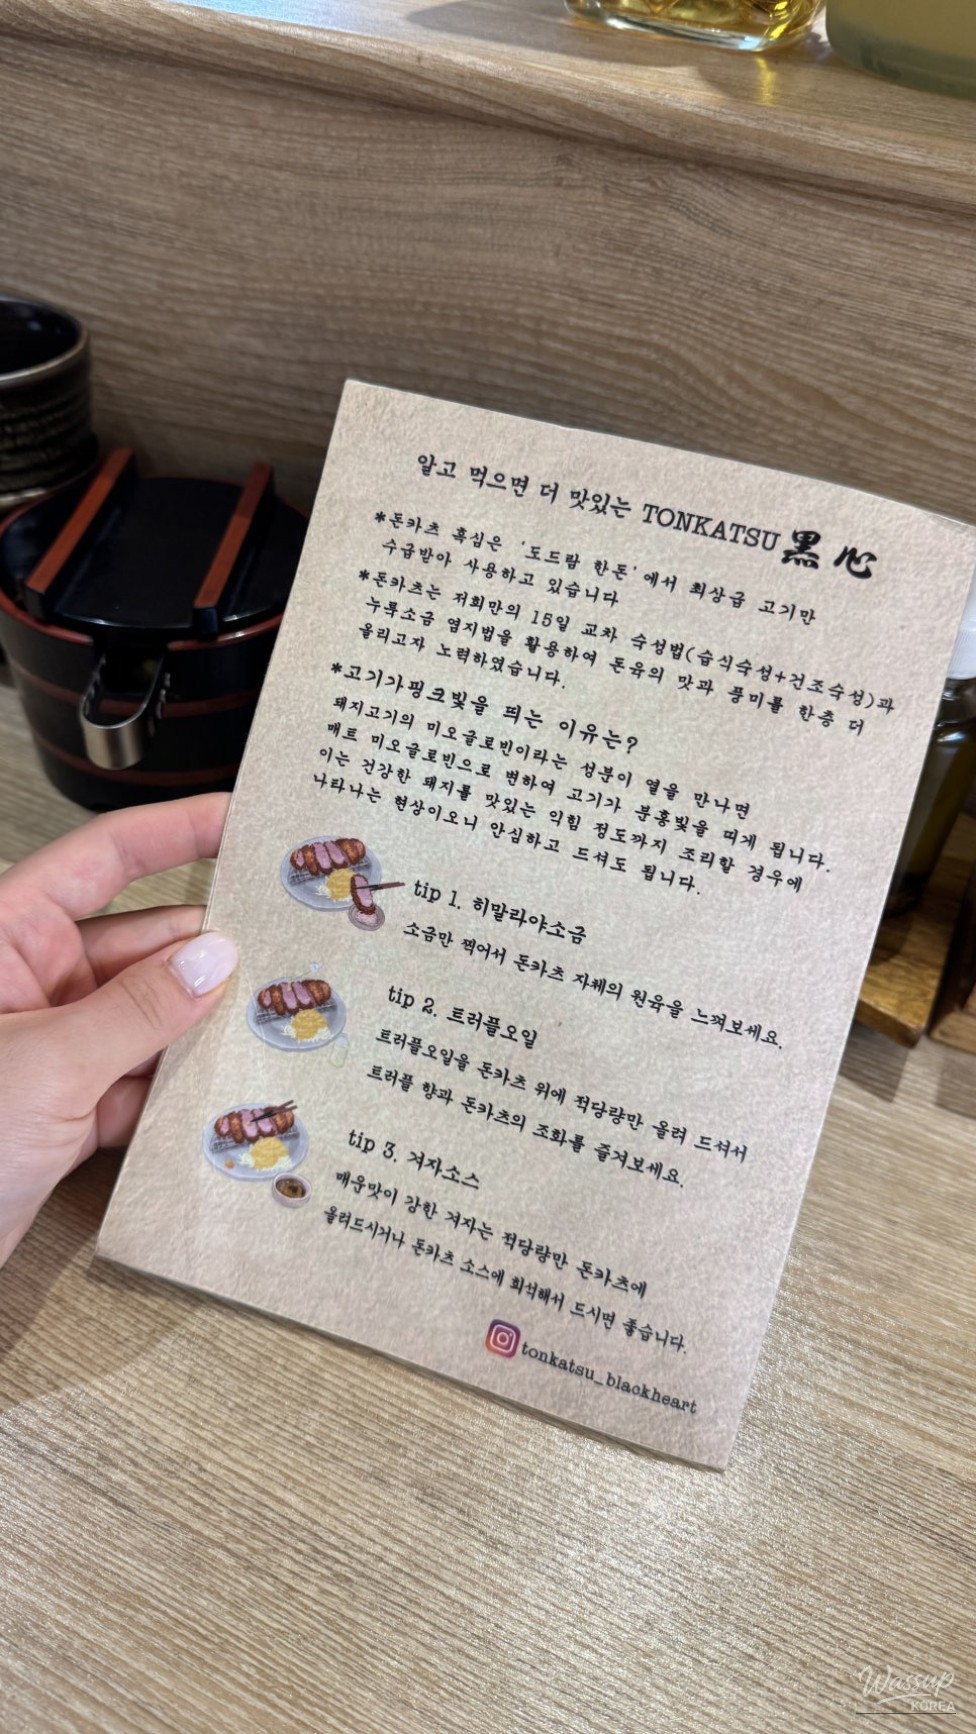 알고 먹으면 더 맛있는 TONKATSU 黑心
*돈카츠 흑심은 '도드람 한돈'에서 최상급 고기만
수급받아 사용하고 있습니다
*돈카츠는 저희만의 15일 교차 숙성법(습식숙성+건조숙성)과
누룩소금 염지법을 활용하여 돈육의 맛과 풍미를 한층 더
올리고자 노력하였습니다.
*고기가핑크빛을 띄는 이유는?
돼지고기의 미오글로빈이라는 성분이 열을 만나면
메트 미오글로빈으로 변하여 고기가 분홍빛을 띠게 됩니다.
이는 건강한 돼지를 맛있는 익힘 정도까지 조리할 경우에
나타나는 현상이오니 안심하고 드셔도 됩니다.
tip 1. 히말라야소금
소금만 찍어서 돈카츠 자체의 원육을 느껴보세요.
tip 2. 트러플오일
트러플오일을 돈카츠 위에 적당량만 올려 드셔서
트러플 향과 돈카츠의 조화를 즐겨보세요.
tip 3. 겨자소스
매운맛이 강한 겨자는 적당량만 돈카츠에
올려드시거나 돈카츠 소스에 희석해서 드시면 좋습니다.
tonkatsu_blackheart
Wassup
KOREA